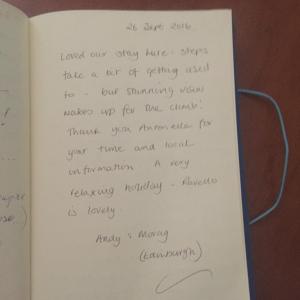 26 Sept 2016
Loved our stay here - steps
take a bit of getting used
to - but stunning view
makes up for the climb!
Thank you Antonella for
your time and local
information A very
relaxing holiday - Ravello
is lovely
Andy & Morag
(Edinburgh)